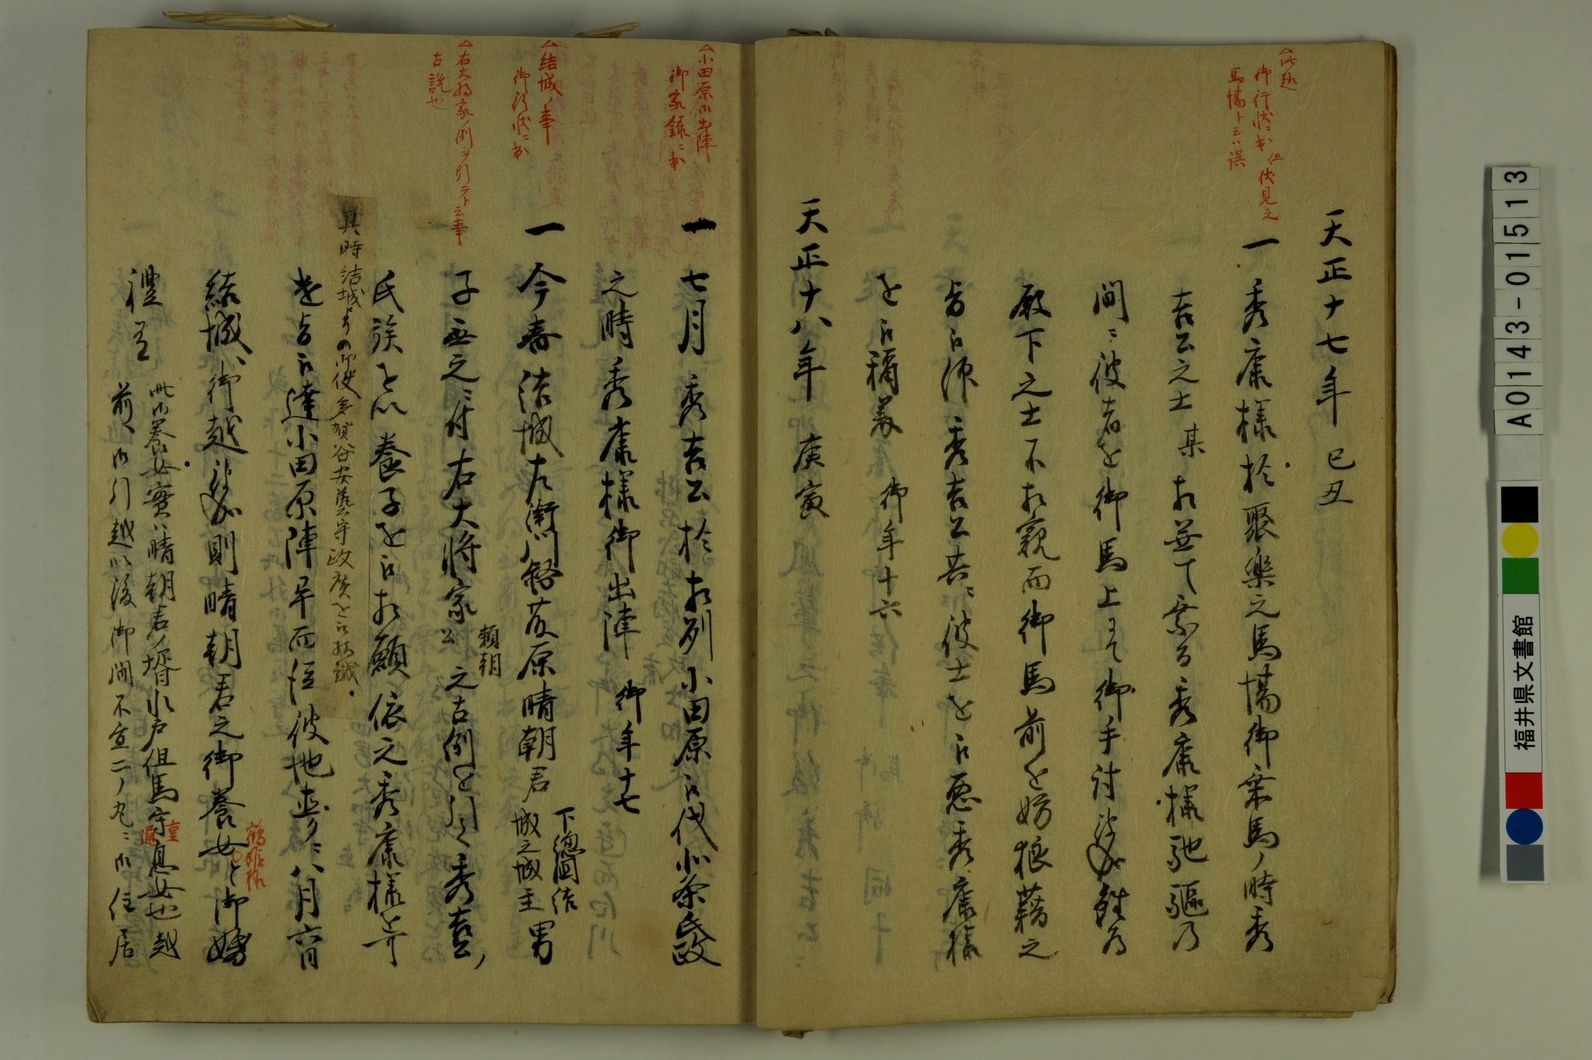 天正十七年 己丑
一秀康様於聚楽之馬場御乗馬ノ時秀
吉公之士某相並て乗る秀康様馳駆乃
間ニ彼者を御馬上ニて御手討
殿下之士不相親而御馬前を妨狼藉之
秀吉公共ニ彼士を被悪秀康様
を被称美 御年十六
天正十八年 庚寅
一七月秀吉公於相列小田原被伐北条氏政
之時秀康様御出陣 御年十七
一今春結城左衛門督藤原晴朝君 下総国結城之城主 男
子無之ニ付右大将家 頼朝公 之古例を引く秀吉公ノ
氏族を以養子を被相願依之秀康様を
被達小田原陣畢而従彼地直ニ八月六日
結城ヘ御越 則晴朝君之御養女を御婚
禮有 此御養女実ハ晴朝君ノ壻水戸但馬守息女也越
前ヘ御引越以後御間不宜二ノ丸ニ御住居
其時結城よりの御使多賀谷安芸守政広を被相越
△此趣
御行状ニ出 伹伏見之
馬場ト云ハ誤
△小田原御出陣
御家録ニ出
△結城ノ事
御行状ニ出
△右大将家ノ例ヲ引テト云事
古説也
鶴姫様
A0143-01513
福井県文書館